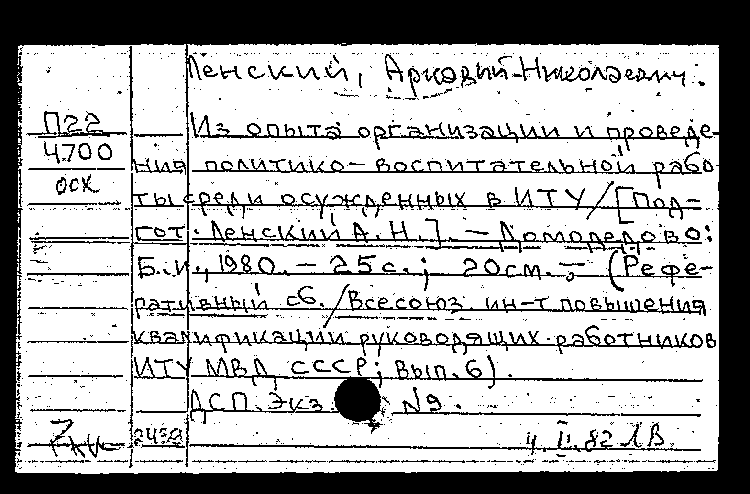 Ленский, Аркадий Николаевич.
П22 Из опыта организации и проведе-
4700 ния политико-воспитательной рабо
осх ты среди осужденных в ИТУ/[Под-
гот. Ленский А.Н.]. — Домодедово:
Б.И., 1980. — 25с.; 20см. — (Рефе-
ративный сб. /Всесоюз. ин-т повышения
квалификации руководящих работников
ИТУ МВД СССР; Вып. 6).
ДСП. Экз. №9.
2439 4.II.82 ЛВ